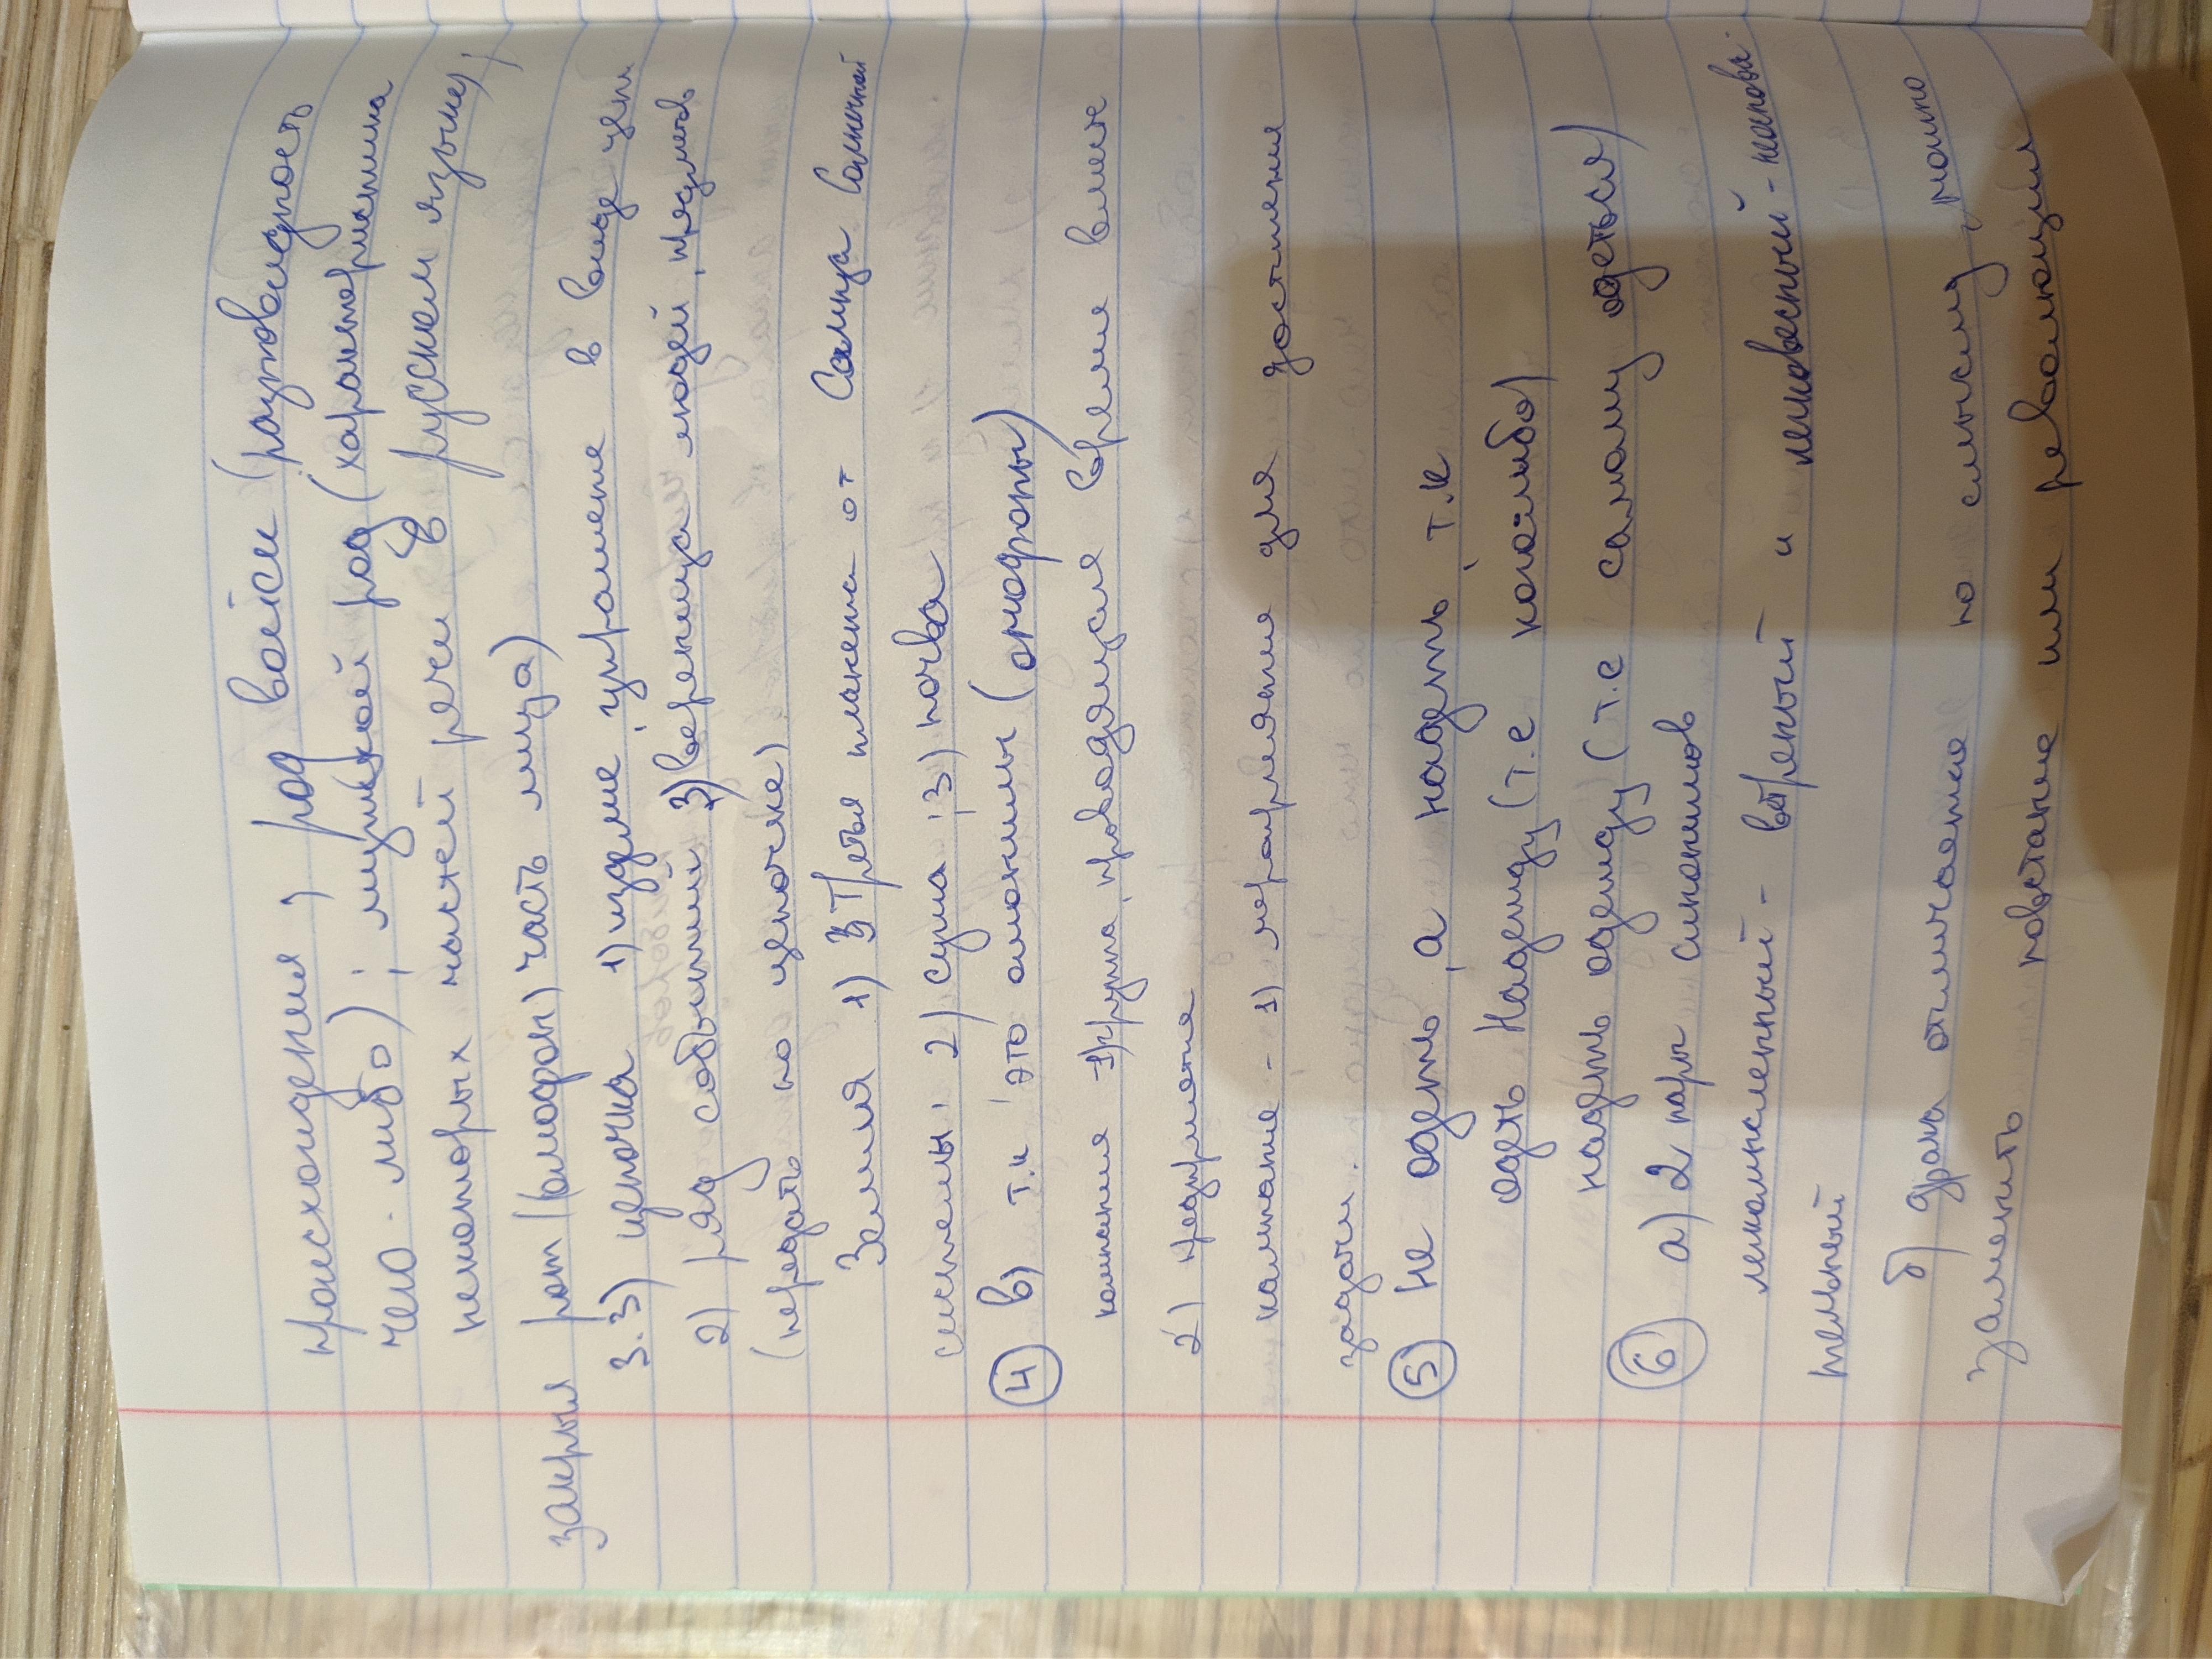 происхождения; род войск (разновидность
чего-либо); мужской род (характеристика
некоторых частей речи в русском языке;
закрыл рот (омофон) часть лица)
3.3) цепочка 1) изделие, украшение в виде цепи
2) ряд событий 3) вереница людей, предметов
(передать по цепочке)
Земля 1) 3Третья планета от Солнца Солнечной
системы; 2) суша; 3) почва
4 в) т.к это омонимы (омофоны)
компания - 1) группа, проводящая время вместе
2) предприятие
кампания - 1) мероприятие для достижения
задачи.
5 не одеть, а надеть, т.к
одеть Надежду (т.е кого-либо)
надеть одежду (т.е самому одеться)
6 а) 2 пары синонимов
легкомысленный - ветреный и легковесный - неоснова-
тельный
б) фраза отличается по смыслу, можно
заменить восстание или революция